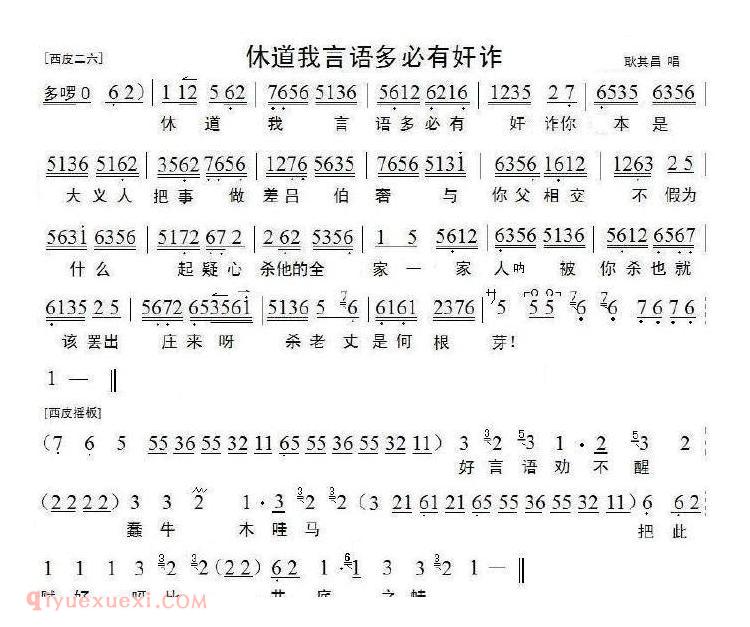 休道我言语多必有奸诈
[西皮二六] 耿其昌 唱
多啰0 (6 2) | 1 12 5 62 | 7656 5136 | 5612 6216 | 1235 2 7 | 6535 6356 |
休 道 我 言 语多必有 奸 诈你 本是
5136 5162 | 3562 7656 | 1276 5635 | 7656 5131 | 6356 1612 | 1263 2 5 |
大义人 把事 做 差吕 伯奢 与 你父相交 不 假为
5631 6356 | 5172 67 2 | 2 62 5356 | 1 5 5612 | 6356 5136 | 5612 6567 |
什么 起疑心 杀他的全 家一家 人呐 被 你杀也就
6135 2 5 | 5672 653561 | 5136 5 7 6 | 6161 2376 | サ5 5 5 7 6 7 6 7 6 7 6
该罢出 庄来呀 杀老丈是何根 芽!
1 — ‖
[西皮摇板]
(7 6 5 55 36 55 32 11 65 55 36 55 32 11) 3 3 2 3 5 1 · 2 5 3 2
好言语劝不醒
(2 2 2 2) 3 3 2 1 · 3 3 2 (3 21 61 21 65 55 36 55 32 11) 6 6 2
蠢牛 木哇马 把此
1 1 1 3 3 2 (2 2) 6 2 1 · 6 1 1 — ‖
qiyuexuexi.COM